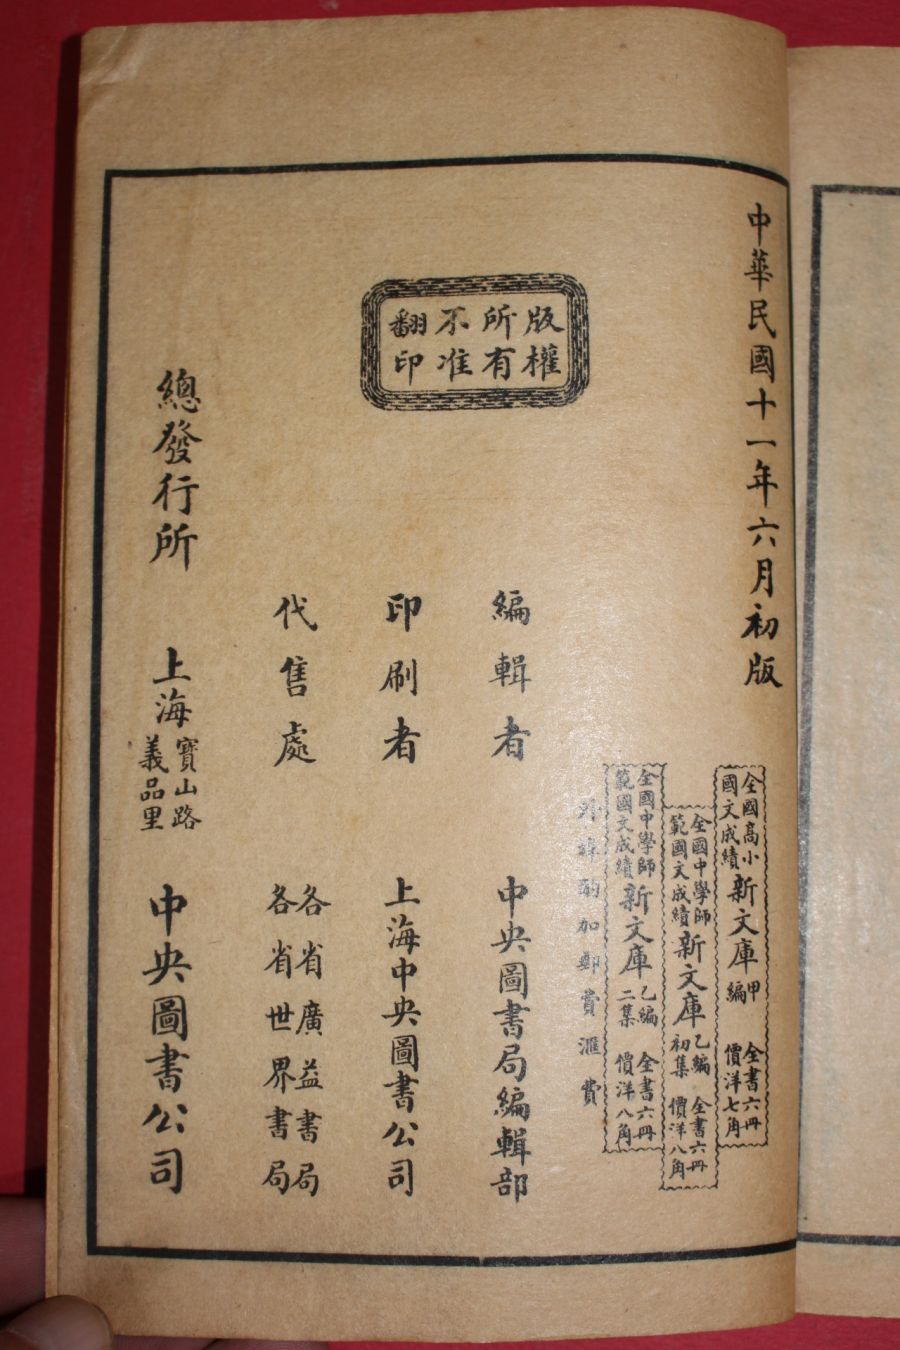 中華民國十一年六月初版
版權所有不准翻印
全國高小國文成績新文庫甲編 全書六冊價洋七角
全國中學師範國文成績新文庫乙編初集 全書六冊價洋八角
全國中學師範國文成績新文庫乙編二集 全書六冊價洋八角
外埠酌加郵費滙費
編輯者 中央圖書局編輯部
印刷者 上海中央圖書公司
代售處 各省廣益書局
各省世界書局
總發行所 上海寶山路義品里 中央圖書公司